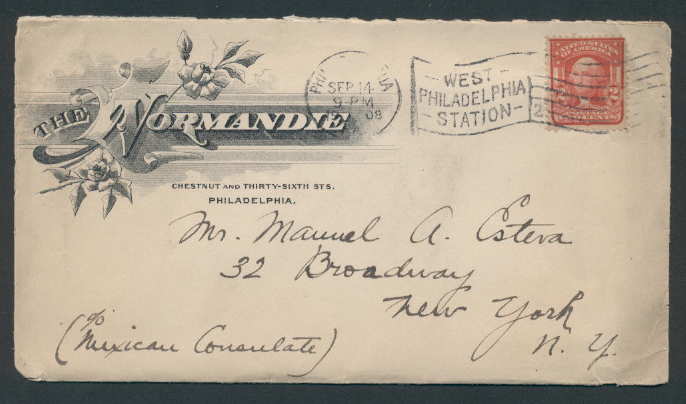 THE NORMANDIE
CHESTNUT AND THIRTY-SIXTH STS.
PHILADELPHIA.
SEP 14
9-PM
08
WEST
PHILADELPHIA
STATION
2
UNITED STATES
OF AMERICA
Mr. Manuel A. Esteva
32 Broadway
New York
N. Y.
c/o
(Mexican Consulate)